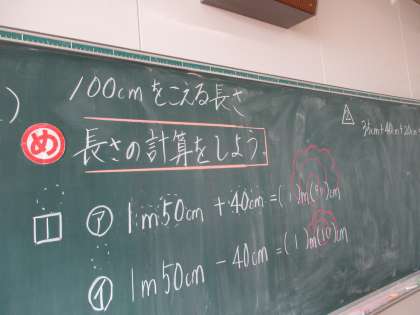 100cmをこえる長さ
め 長さの計算をしよう。
1 ㋐ 1m50cm+40cm=(1)m(90)cm
㋑ 1m50cm-40cm=(1)m(10)cm